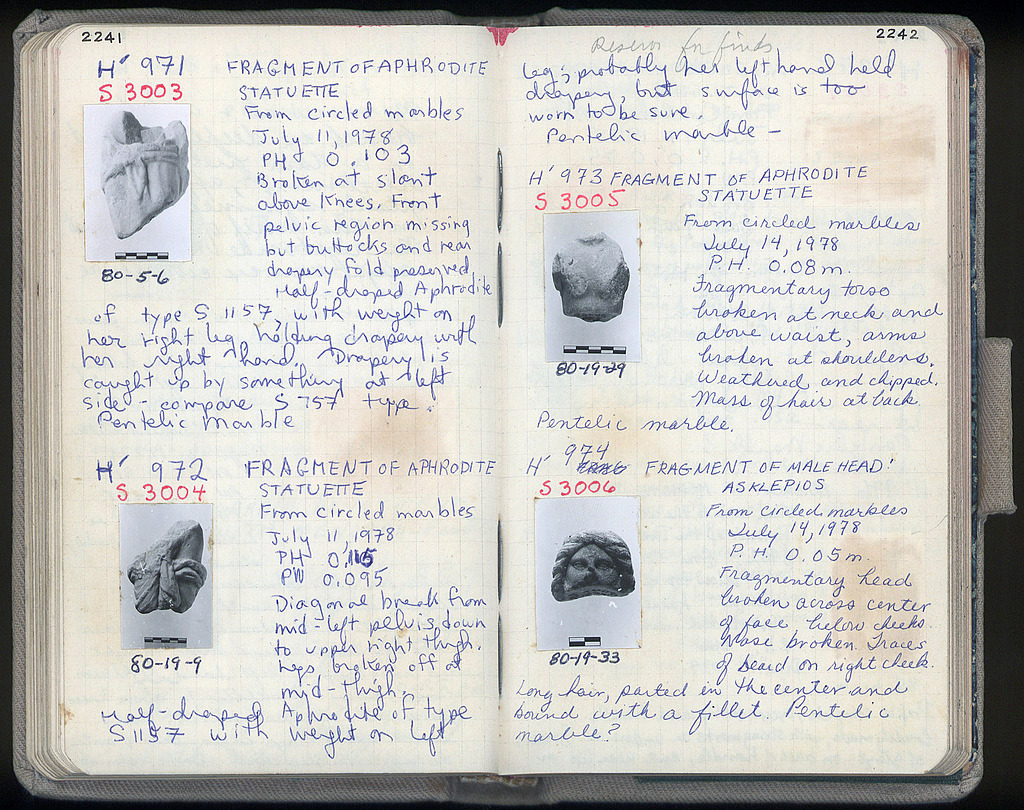 2241
H' 971 FRAGMENT OF APHRODITE
S 3003 STATUETTE
From circled marbles
July 11, 1978
PH 0.103
Broken at slant
above knees. Front
pelvic region missing
but buttocks and rear
drapery fold preserved.
Half-draped Aphrodite
80-5-6
of type S 1157, with weight on
her right leg holding drapery with
her right hand. Drapery is
caught up by something at left
side - compare S 757 type.
Pentelic marble
H' 972 FRAGMENT OF APHRODITE
S 3004 STATUETTE
From circled marbles
July 11, 1978
PH 0.115
PW 0.095
Diagonal break from
mid-left pelvis down
to upper right thigh.
Legs broken off at
mid-thigh.
80-19-9
Half-draped Aphrodite of type
S 1157 with weight on left
2242
Reserve for finds
leg; probably her left hand held
drapery, but surface is too
worn to be sure.
Pentelic marble -
H' 973 FRAGMENT OF APHRODITE
S 3005 STATUETTE
From circled marbles
July 14, 1978
P.H. 0.08m.
Fragmentary torso
broken at neck and
above waist, arms
broken at shoulders.
Weathered and chipped.
Mass of hair at back.
80-19-29
Pentelic marble.
H' 974 FRAGMENT OF MALE HEAD:
S 3006 ASKLEPIOS
From circled marbles
July 14, 1978
P.H. 0.05m.
Fragmentary head
broken across center
of face below cheeks.
Nose broken. Traces
of beard on right cheek.
80-19-33
Long hair, parted in the center and
bound with a fillet. Pentelic
marble?